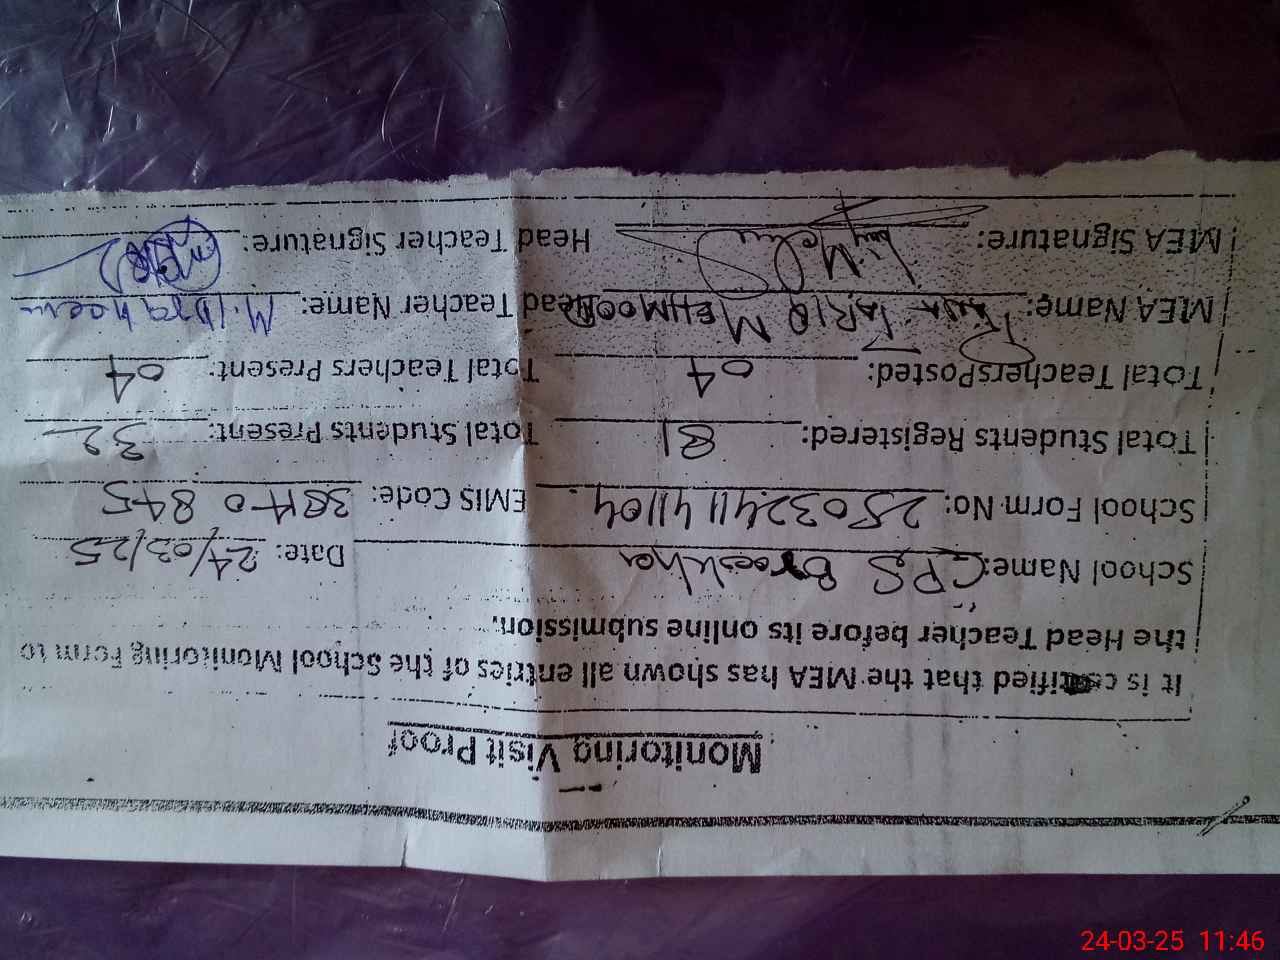 Monitoring Visit Proof
It is certified that the MEA has shown all entries of the School Monitoring Form to
the Head Teacher before its online submission.
School Name: GPS Date: 24/03/25
School Form No: 2503241141104 EMIS Code: 38440845
Total Students Registered: 81 Total Students Present: 32
Total TeachersPosted: 04 Total Teachers Present: 04
MEA Name: TARIQ MEHMOOD Head Teacher Name: M. Ibraheem
MEA Signature: Head Teacher Signature:
24-03-25 11:46